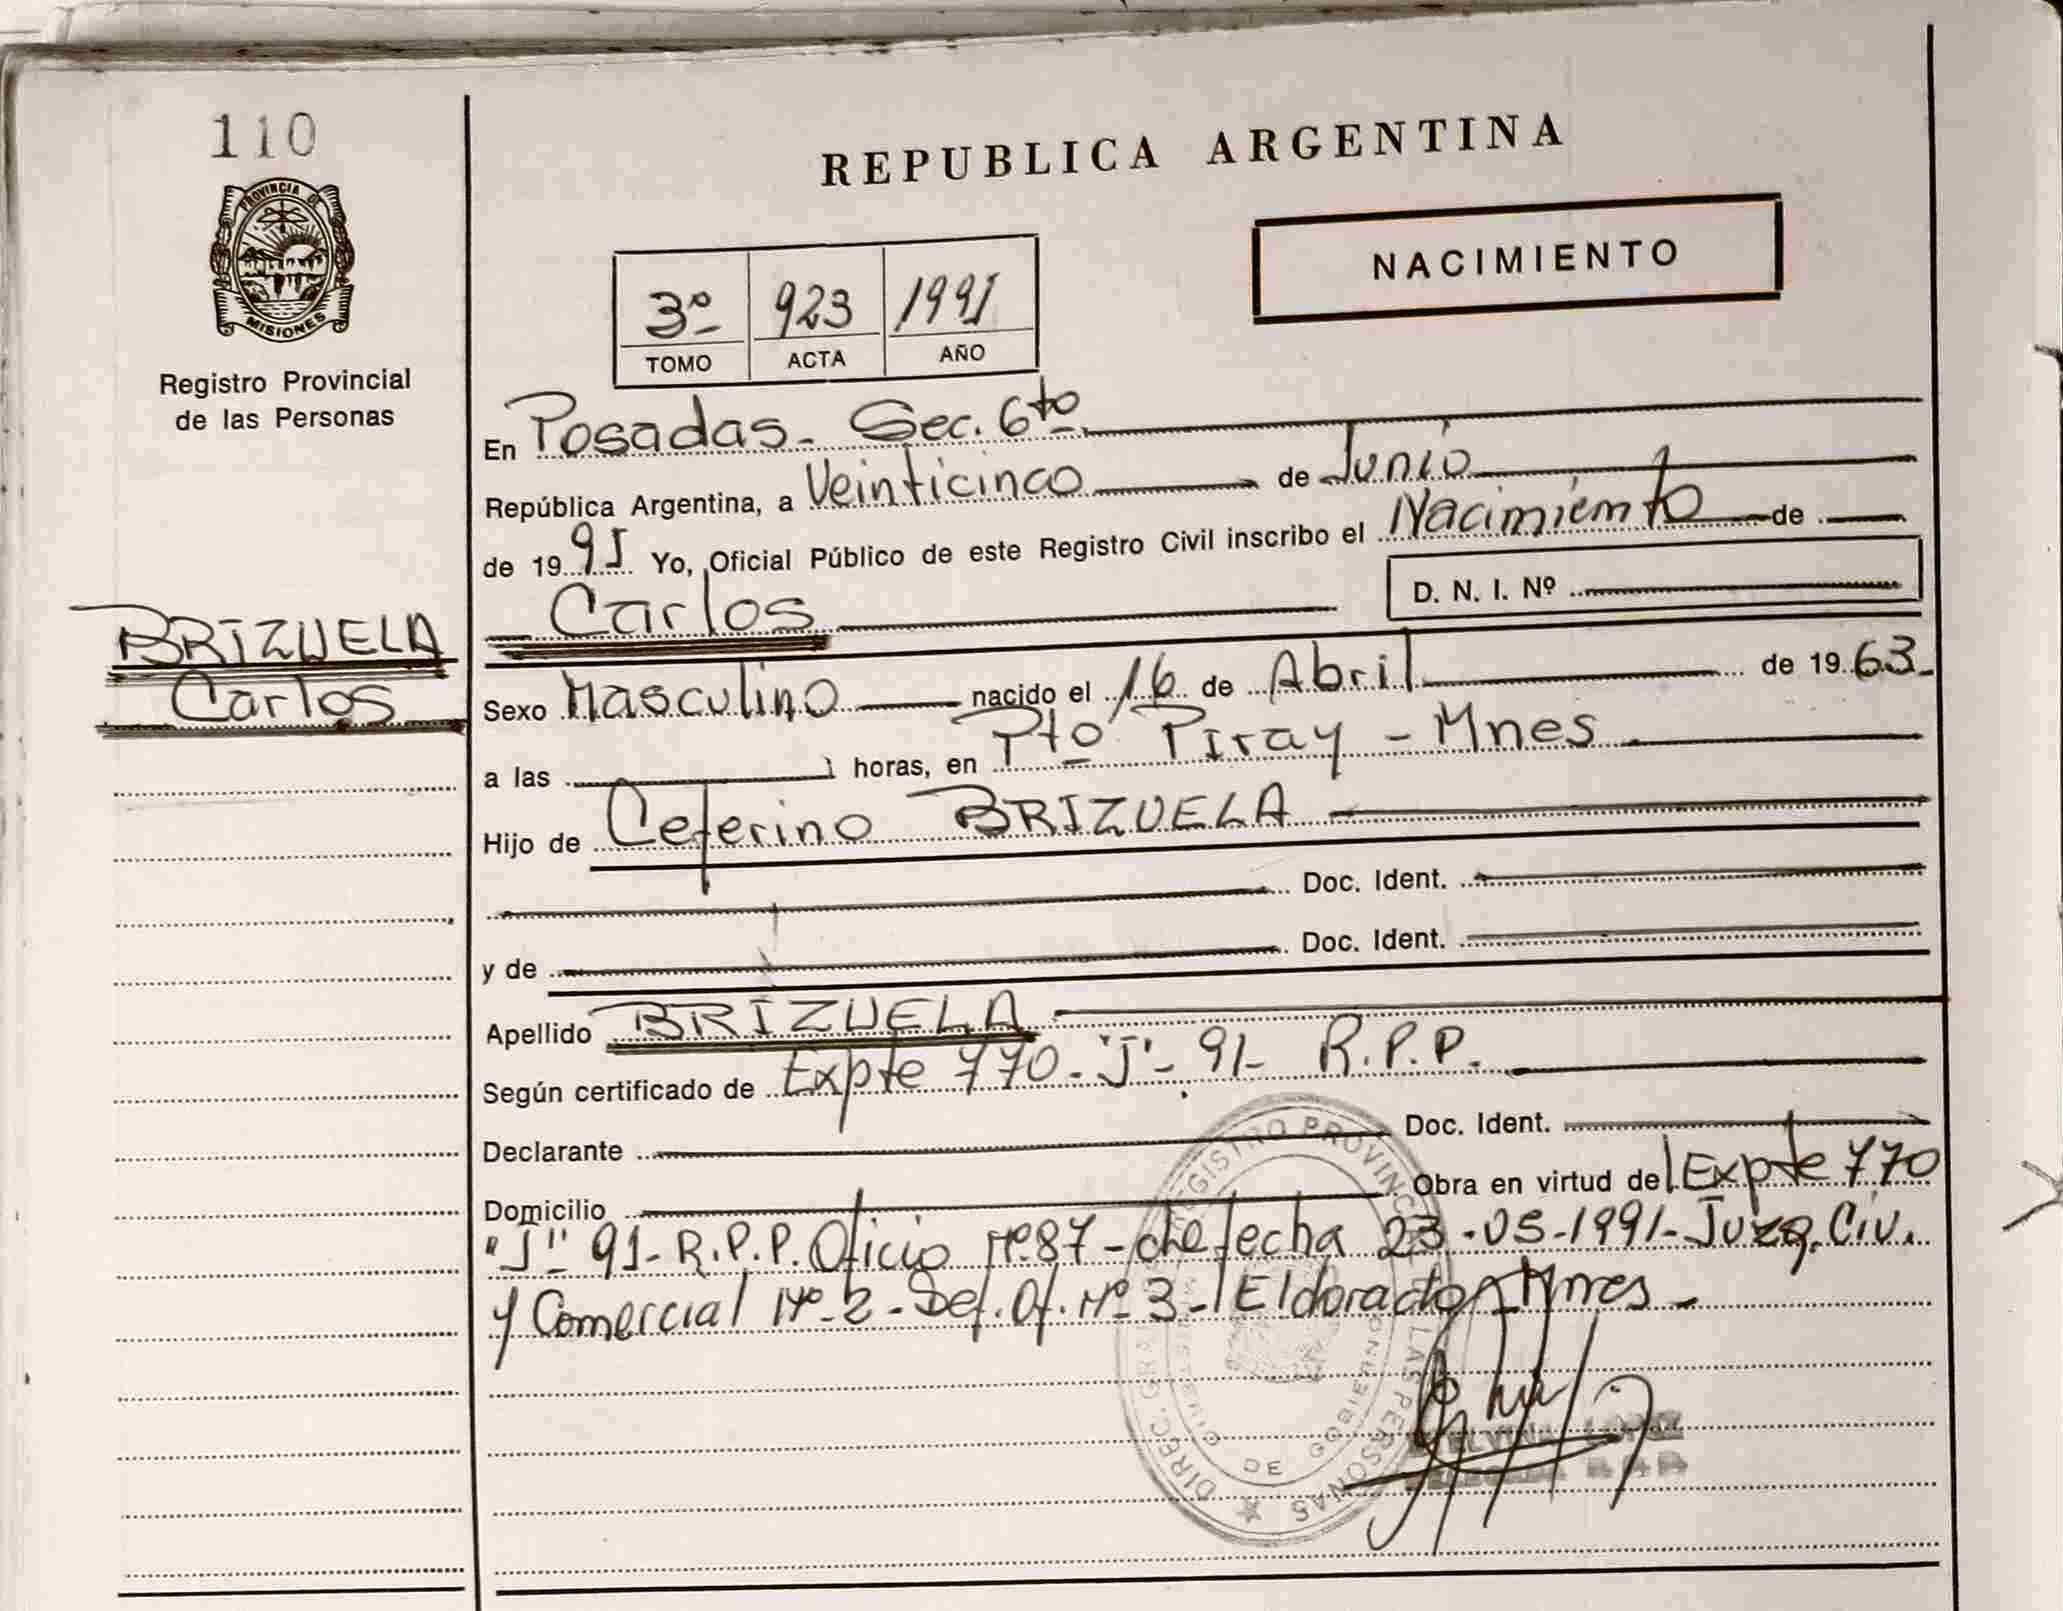 110
PROVINCIA DE
MISIONES
Registro Provincial
de las Personas
BRIZUELA
Carlos
REPUBLICA ARGENTINA
NACIMIENTO
3º 923 1991
TOMO ACTA AÑO
En Posadas - Sec. 6to
República Argentina, a Veinticinco de Junio
de 1991 Yo, Oficial Público de este Registro Civil inscribo el Nacimiento de
Carlos D. N. I. Nº
Sexo Masculino nacido el 16 de Abril de 1963
a las horas, en Pto Piray - Mnes
Hijo de Ceferino BRIZUELA
Doc. Ident.
y de Doc. Ident.
Apellido BRIZUELA
Según certificado de Expte 770 - "J" - 91 - R.P.P.
Declarante Doc. Ident.
Domicilio Obra en virtud del Expte 770
"J" 91 - R.P.P. Oficio Nº 87 - de fecha 23 - 05 - 1991 - Juzg. Civ.
y Comercial Nº 2 - Def. Of. Nº 3 - Eldorado - Mnes -
DIREC. GRAL REGISTRO PROVINCIAL DE LAS PERSONAS
MINISTERIO DE GOBIERNO
LOPEZ